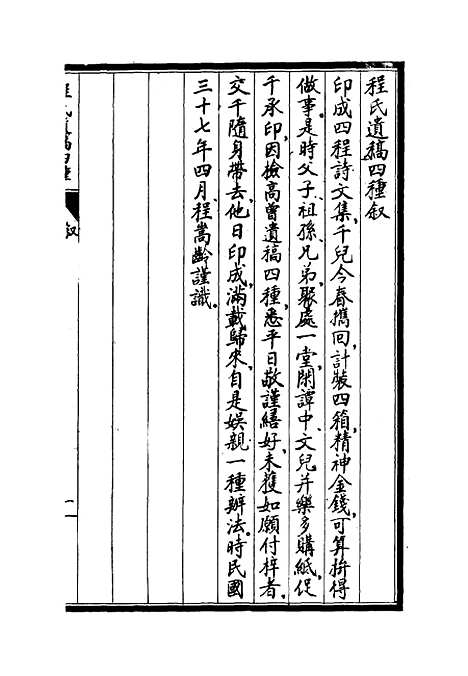 程氏遺稿四種叙
印成四程詩文集，千兒今春攜回，計裝四箱，精神金錢，可算拚得
做事。是時父子、祖孫、兄弟，聚處一堂，閑譚中，文兒并樂多購紙，促
千承印，因檢高曾遺稿四種，悉平日敬謹繕好，未獲如願付梓者，
交千隨身帶去，他日印成，滿載歸來，自是娛親一種辦法。時民國
三十七年四月，程嵩齡謹識。
程氏遺稿四種
叙
一